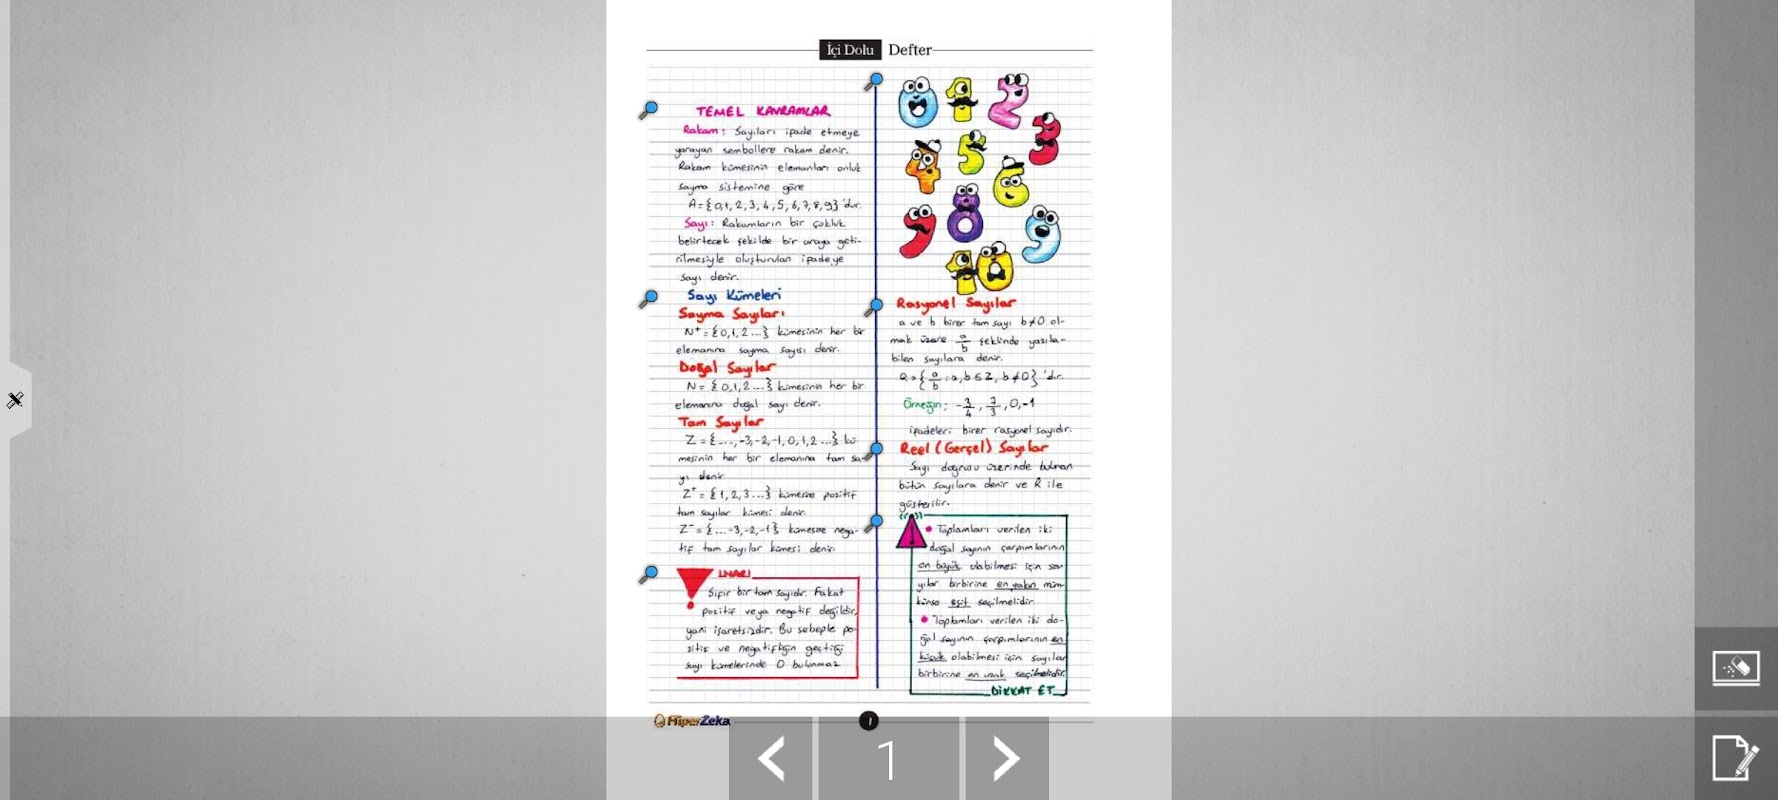 İçi Dolu Defter
TEMEL KAVRAMLAR
Rakam: Sayıları ifade etmeye
yarayan sembollere rakam denir.
Rakam kümesinin elemanları onluk
sayma sistemine göre
A={0,1,2,3,4,5,6,7,8,9}'dur.
Sayı: Rakamların bir çokluk
belirtecek şekilde bir araya geti-
rilmesiyle oluşturulan ifadeye
sayı denir.
Sayı Kümeleri
Sayma Sayıları
N⁺={0,1,2...} kümesinin her bir
elemanına sayma sayısı denir.
Doğal Sayılar
N={0,1,2...} kümesinin her bir
elemanına doğal sayı denir.
Tam Sayılar
Z={...,-3,-2,-1,0,1,2...} kü
mesinin her bir elemanına tam sa-
yı denir
Z⁺={1,2,3...} kümesine pozitif
tam sayılar kümesi denir.
Z⁻={...-3,-2,-1} kümesine nega-
tif tam sayılar kümesi denir
UYARI
Sıfır bir tam sayıdır. Fakat
pozitif veya negatif değildir,
yani işaretsizdir. Bu sebeple po-
zitif ve negatifliğin geçtiği
sayı kümelerinde 0 bulunmaz
0 1 2
3
4 5
6
7 8 9
10
Rasyonel Sayılar
a ve b birer tam sayı b≠0 ol-
mak üzere a/b şeklinde yazıla-
bilen sayılara denir.
Q={a/b : a,b ∈ Z, b≠0}'dır.
Örneğin; -3/4, 7/3, 0,-1
ifadeleri birer rasyonel sayıdır.
Reel (Gerçel) Sayılar
Sayı doğrusu üzerinde bulunan
bütün sayılara denir ve R ile
gösterilir.
• Toplamları verilen iki
doğal sayının çarpımlarının
en büyük olabilmesi için sa-
yılar birbirine en yakın müm-
künse eşit seçilmelidir.
• Toplamları verilen iki do-
ğal sayının çarpımlarının en
küçük olabilmesi için sayılar
birbirine en uzak seçilmelidir.
DİKKAT ET
HiperZeka
1
1